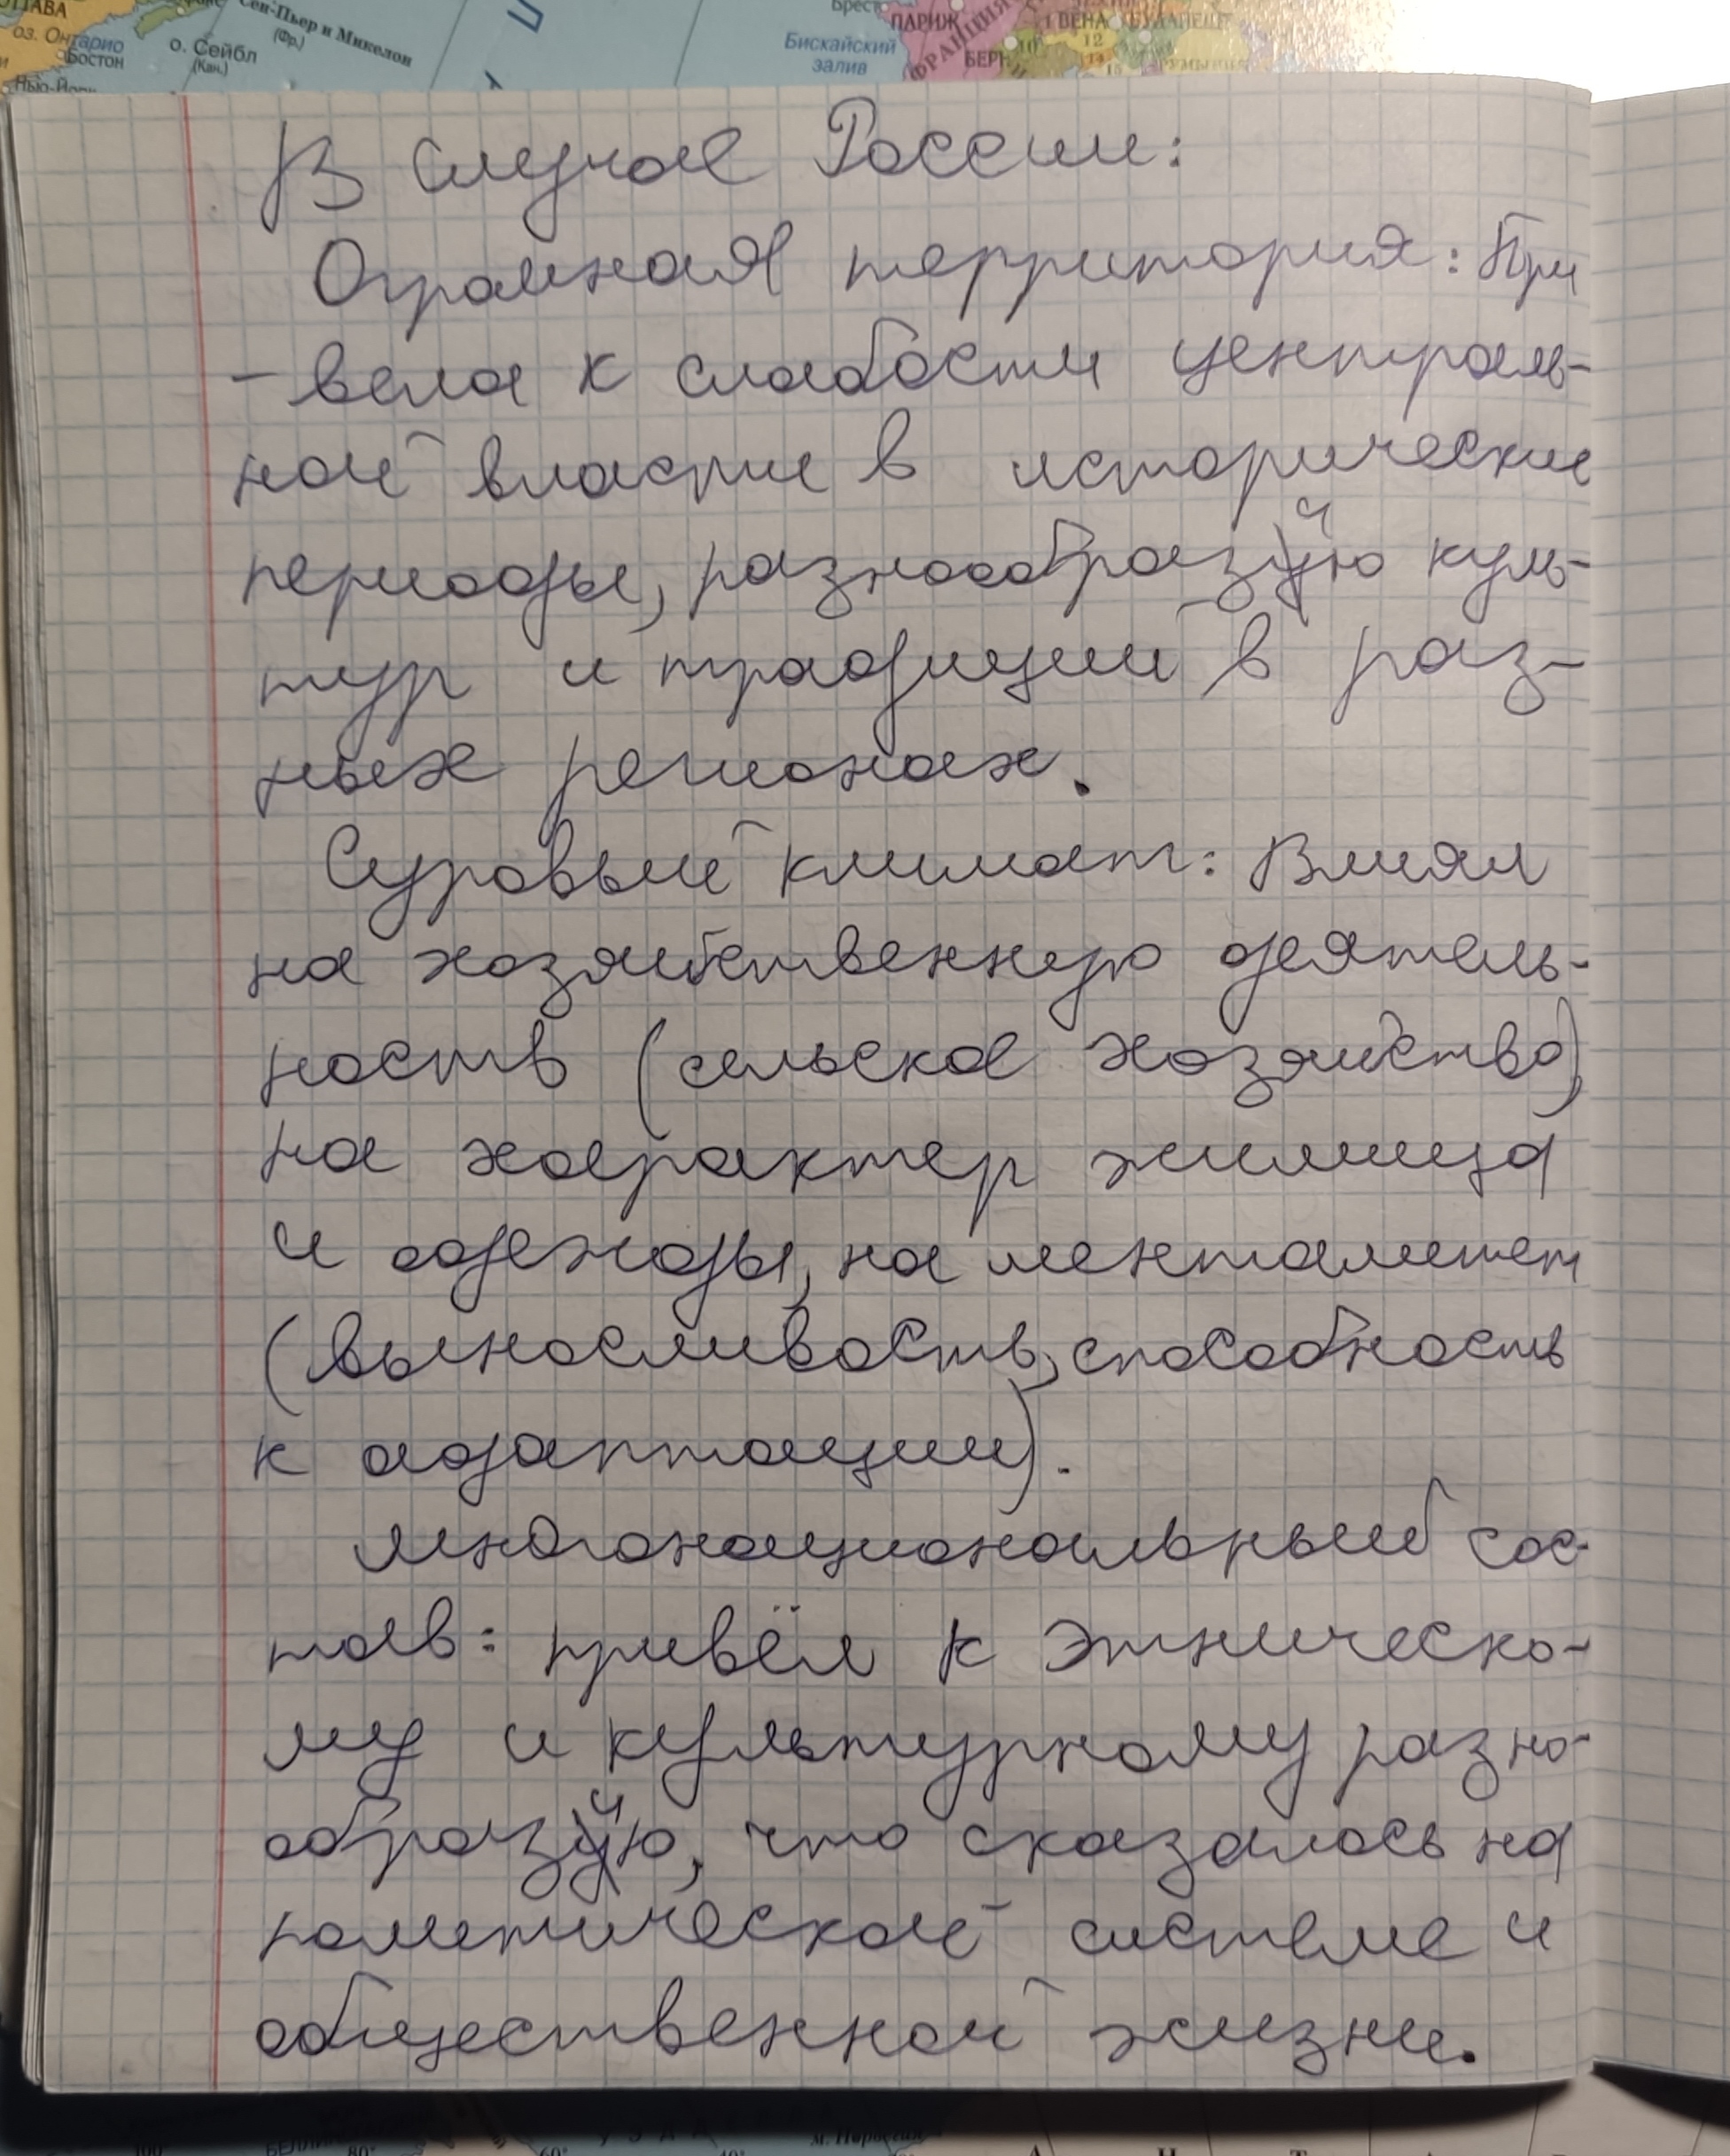 ОТТАВА
оз. Онтарио
Бостон
Нью-Йорк
Сен-Пьер и Микелон
(Фр.)
о. Сейбл
(Кан.)
Брест
ПАРИЖ
ФРАНЦИЯ
Бискайский
залив
БЕРН
ВЕНА
БУДАПЕШТ
10
12
РУМЫНИЯ
В случае России:
Огромная территория: При
-вела к слабости централь-
ной власти в исторические
периоды, разнообразию куль-
тур и традиций в раз-
ных регионах.
Суровый климат: Влиял
на хозяйственную деятель-
ность (сельское хозяйство),
на характер жилища
и одежды, на менталитет
(выносливость, способность
к адаптации).
Многонациональный сос-
тав: привёл к этническо-
му и культурному разно-
образию, что сказалось на
политической системе и
общественной жизни.
80°
60°